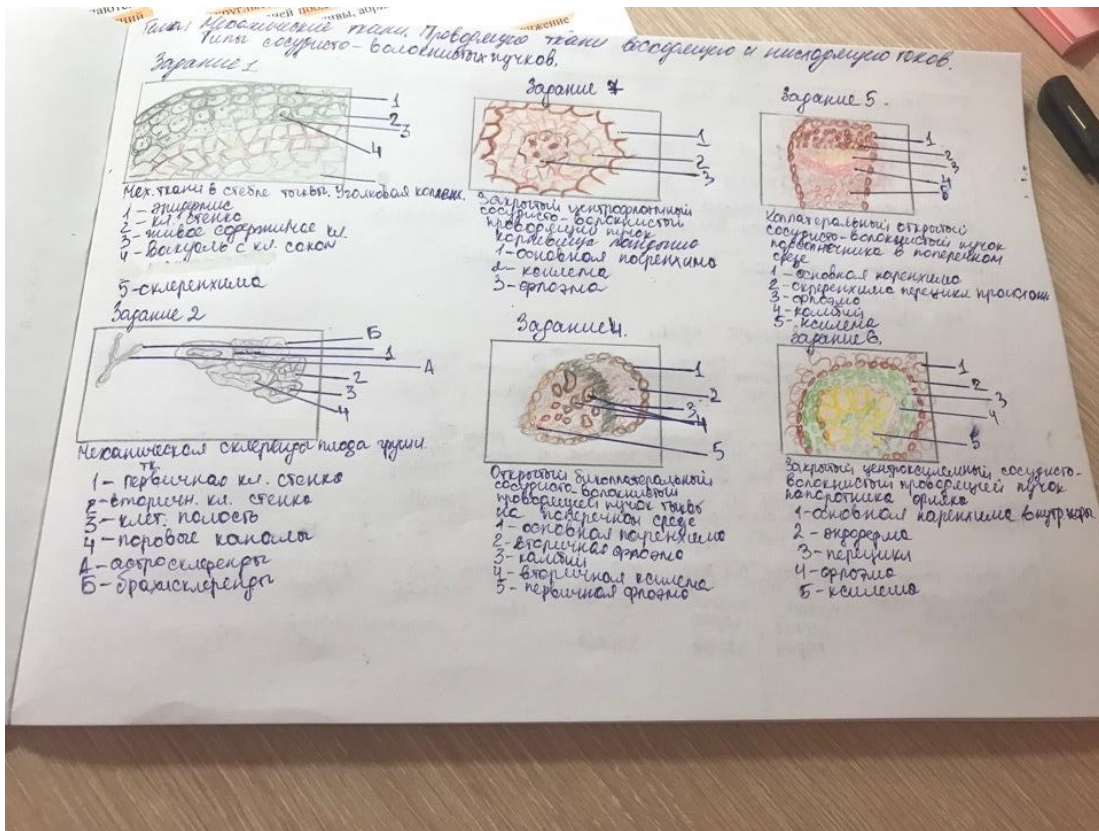 Тема: Механические ткани. Проводящие ткани восходящего и нисходящего токов.
Типы сосудисто-волокнистых пучков.
Задание 1
1
2
3
4
Мех. ткани в стебле тыквы. Уголковая коленх.
1 - эпидермис
2 - кл. стенка
3 - живое содержимое кл.
4 - вакуоль с кл. соком
5 - склеренхима
Задание 2
Б
1
А
2
3
4
Механическая тк. склереиды плода груши.
1 - первичная кл. стенка
2 - вторичн. кл. стенка
3 - клет. полость
4 - поровые каналы
А - астросклереиды
Б - брахисклереиды
Задание 7
1
2
3
Закрытый центрофлоэмный
сосудисто-волокнистый
проводящий пучок
корневища ландыша
1 - основная паренхима
2 - ксилема
3 - флоэма
Задание 4.
1
2
3
4
5
Открытый биколлатеральный
сосудисто-волокнистый
проводящий пучок тыквы
на поперечном срезе
1 - основная паренхима
2 - вторичная флоэма
3 - камбий
4 - вторичная ксилема
5 - первичная флоэма
Задание 5.
1
2
3
4
5
Коллатеральный открытый
сосудисто-волокнистый пучок
подсолнечника в поперечном
срезе
1 - основная паренхима
2 - склеренхима перицикл
3 - флоэма
4 - камбий
5 - ксилема
Задание 6.
1
2
3
4
5
Закрытый центроксилемный сосудисто-
волокнистый проводящей пучок
папоротника орляка
1 - основная паренхима внутр. коры
2 - эндодерма
3 - перицикл
4 - флоэма
5 - ксилема